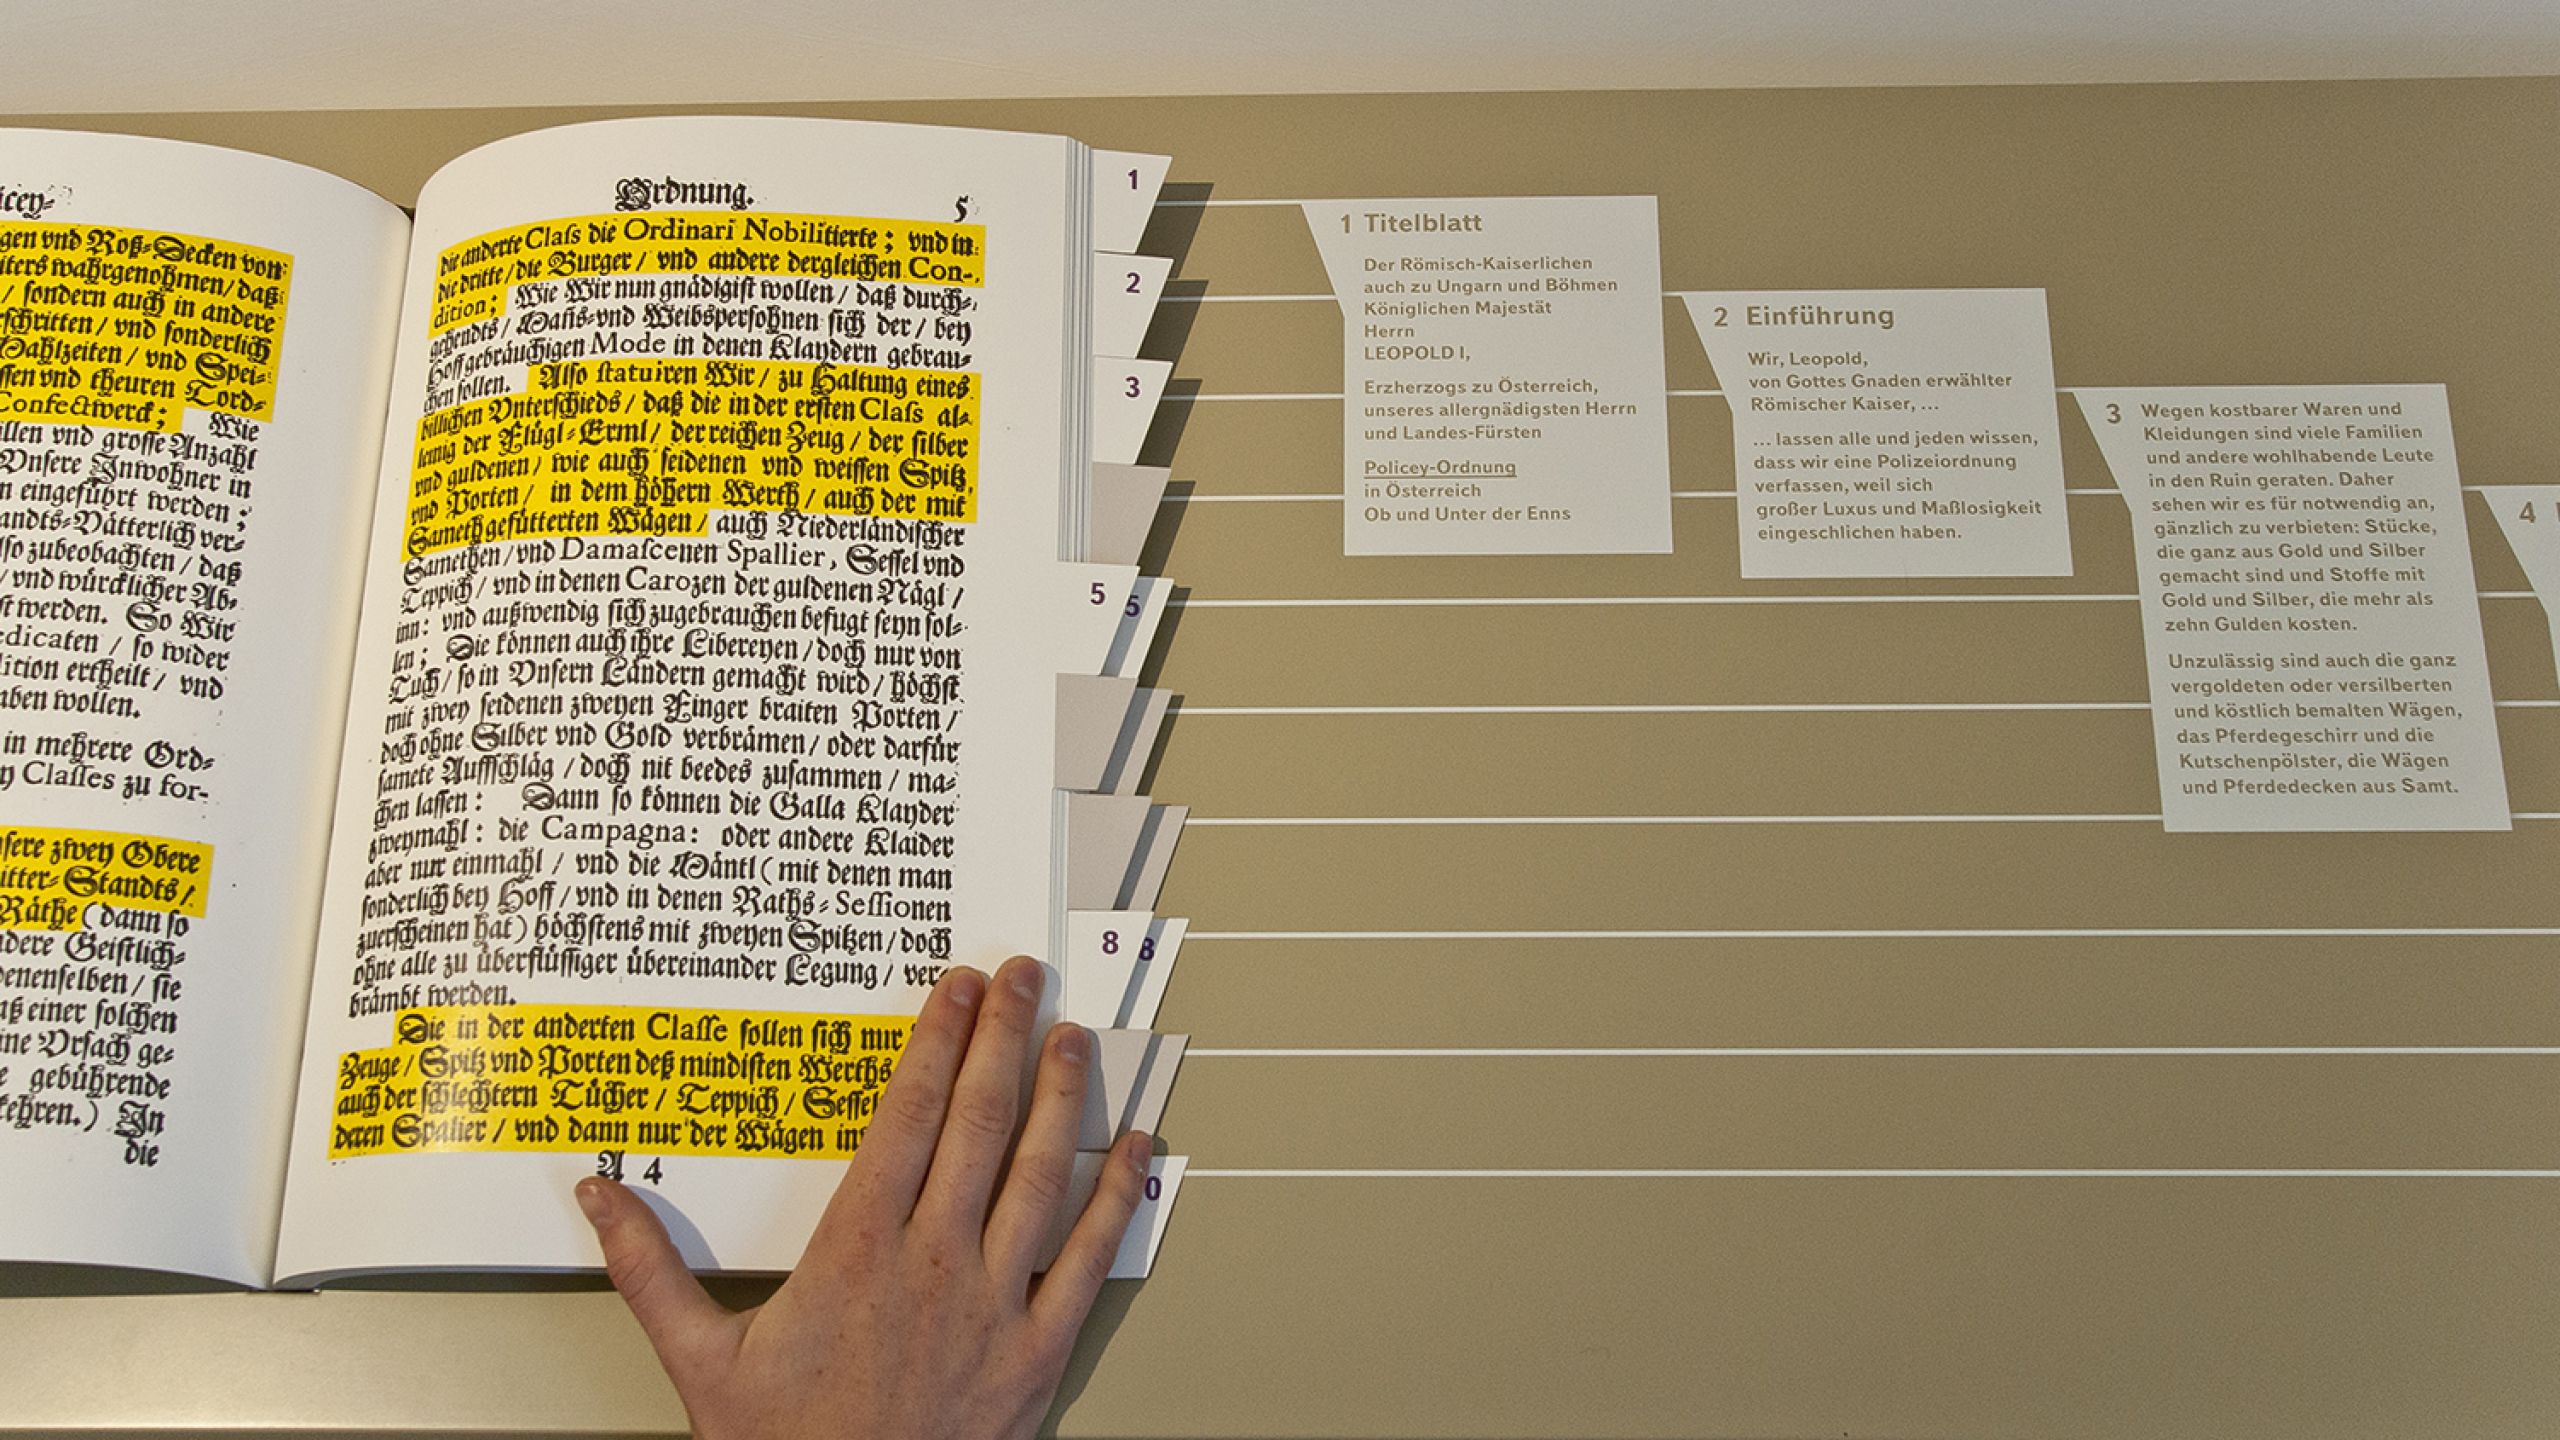 icey⸗
gen vnd Roß⸗Decken von
iters wahrgenohmen/ daß
/ sondern auch in andere
schritten/ vnd sonderlich
Mahlzeiten/ vnd Spei⸗
ssen vnd theuren Tord⸗
Confectwerck; Wie
illen vnd grosse Anzahl
Vnsere Inwohner in
n eingeführt werden;
andts⸗Vätterlich ver⸗
lso zubeobachten/ daß
/ vnd würcklicher Ab⸗
st werden. So Wir
edicaten/ so wider
lition ertheilt/ vnd
aben wollen.
in mehrere Ord⸗
n Classes zu for-
nsere zwey Obere
itter⸗Standts/
Räthe (dann so
ndere Geistlich⸗
denenselben/ sie
aß einer solchen
ine Vrsach ge⸗
e gebührende
kehren.) In
die
Ordnung. 5
die anderte Class die Ordinari Nobilitierte; vnd in
die dritte/ die Burger/ vnd andere dergleichen Con-
dition; Wie Wir nun gnädigist wollen/ daß durch⸗
gehendts/ Mañs⸗vnd Weibspersohnen sich der/ bey
Hoff gebräuchigen Mode in denen Klaydern gebrau⸗
chen sollen. Also statuiren Wir/ zu Haltung eines
billichen Vnterschieds/ daß die in der ersten Class al⸗
leinig der Flügl⸗Erml/ der reichen Zeug/ der silber
vnd guldenen/ wie auch seidenen vnd weissen Spitz
vnd Porten/ in dem höhern Werth/ auch der mit
Sameth gefütterten Wägen/ auch Niederländischer
Samethen/ vnd Damascenen Spallier, Sessel vnd
Teppich/ vnd in denen Carozen der guldenen Nägl/
inn: vnd außwendig sich zugebrauchen befugt seyn sol⸗
len; Die können auch ihre Libereyen/ doch nur von
Tuch/ so in Vnsern Ländern gemacht wird/ höchst
mit zwey seidenen zweyen Finger braiten Porten/
doch ohne Silber vnd Gold verbrämen/ oder darfür
samete Auffschläg/ doch nit beedes zusammen/ ma⸗
chen lassen: Dann so können die Galla Klayder
zweymahl: die Campagna: oder andere Klaider
aber nur einmahl/ vnd die Mäntl (mit denen man
sonderlich bey Hoff/ vnd in denen Raths⸗Sessionen
zuerscheinen hat) höchstens mit zweyen Spitzen/ doch
ohne alle zu überflüssiger übereinander Legung/ ver⸗
brämbt werden.
Die in der anderten Classe sollen sich nur
Zeuge/ Spitz vnd Porten deß mindisten Werths
auch der schlechtern Tücher/ Teppich/ Sessel
deren Spalier/ vnd dann nur der Wägen in
A 4
1
2
3
5 5
8 8
0
1 Titelblatt
Der Römisch-Kaiserlichen
auch zu Ungarn und Böhmen
Königlichen Majestät
Herrn
LEOPOLD I,
Erzherzogs zu Österreich,
unseres allergnädigsten Herrn
und Landes-Fürsten
Policey-Ordnung
in Österreich
Ob und Unter der Enns
2 Einführung
Wir, Leopold,
von Gottes Gnaden erwählter
Römischer Kaiser, ...
... lassen alle und jeden wissen,
dass wir eine Polizeiordnung
verfassen, weil sich
großer Luxus und Maßlosigkeit
eingeschlichen haben.
3 Wegen kostbarer Waren und
Kleidungen sind viele Familien
und andere wohlhabende Leute
in den Ruin geraten. Daher
sehen wir es für notwendig an,
gänzlich zu verbieten: Stücke,
die ganz aus Gold und Silber
gemacht sind und Stoffe mit
Gold und Silber, die mehr als
zehn Gulden kosten.
Unzulässig sind auch die ganz
vergoldeten oder versilberten
und köstlich bemalten Wägen,
das Pferdegeschirr und die
Kutschenpölster, die Wägen
und Pferdedecken aus Samt.
4